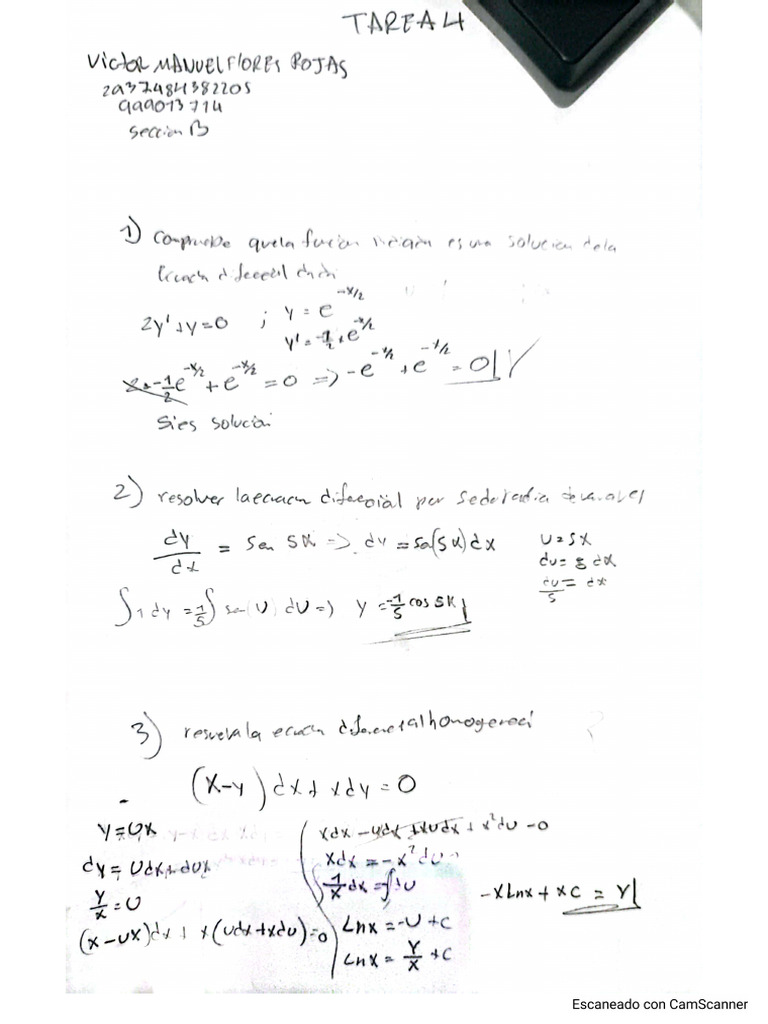 TAREA 4
Victor MANUEL FLORES ROJAS
2937484382205
999013714
Sección B
1) compruebe que la función es una solución de la
2y' + y = 0 ; y = e^{-x/2}
y' = -1/2 · e^{-x/2}
2 · -1/2 e^{-x/2} + e^{-x/2} = 0 => -e^{-x/2} + e^{-x/2} = 0
Si es solución
2) resolver la ecuación diferencial por
dy/dx = sen 5x => dy = sen(5x) dx
u = 5x
du = 5 dx
du/5 = dx
∫1 dy = 1/5 ∫ sen(u) du => y = -1/5 cos 5x
3) resuelva la ecuación diferencial homogenea
(x-y) dx + x dy = 0
y = ux
dy = udx + dux
y/x = u
(x - ux)dx + x(udx + xdu) = 0
xdx - uxdx + xudx + x²du = 0
xdx = -x²du
∫1/x dx = ∫du
Lnx = -u + c
Lnx = y/x + c
-xLnx + xc = y
Escaneado con CamScanner